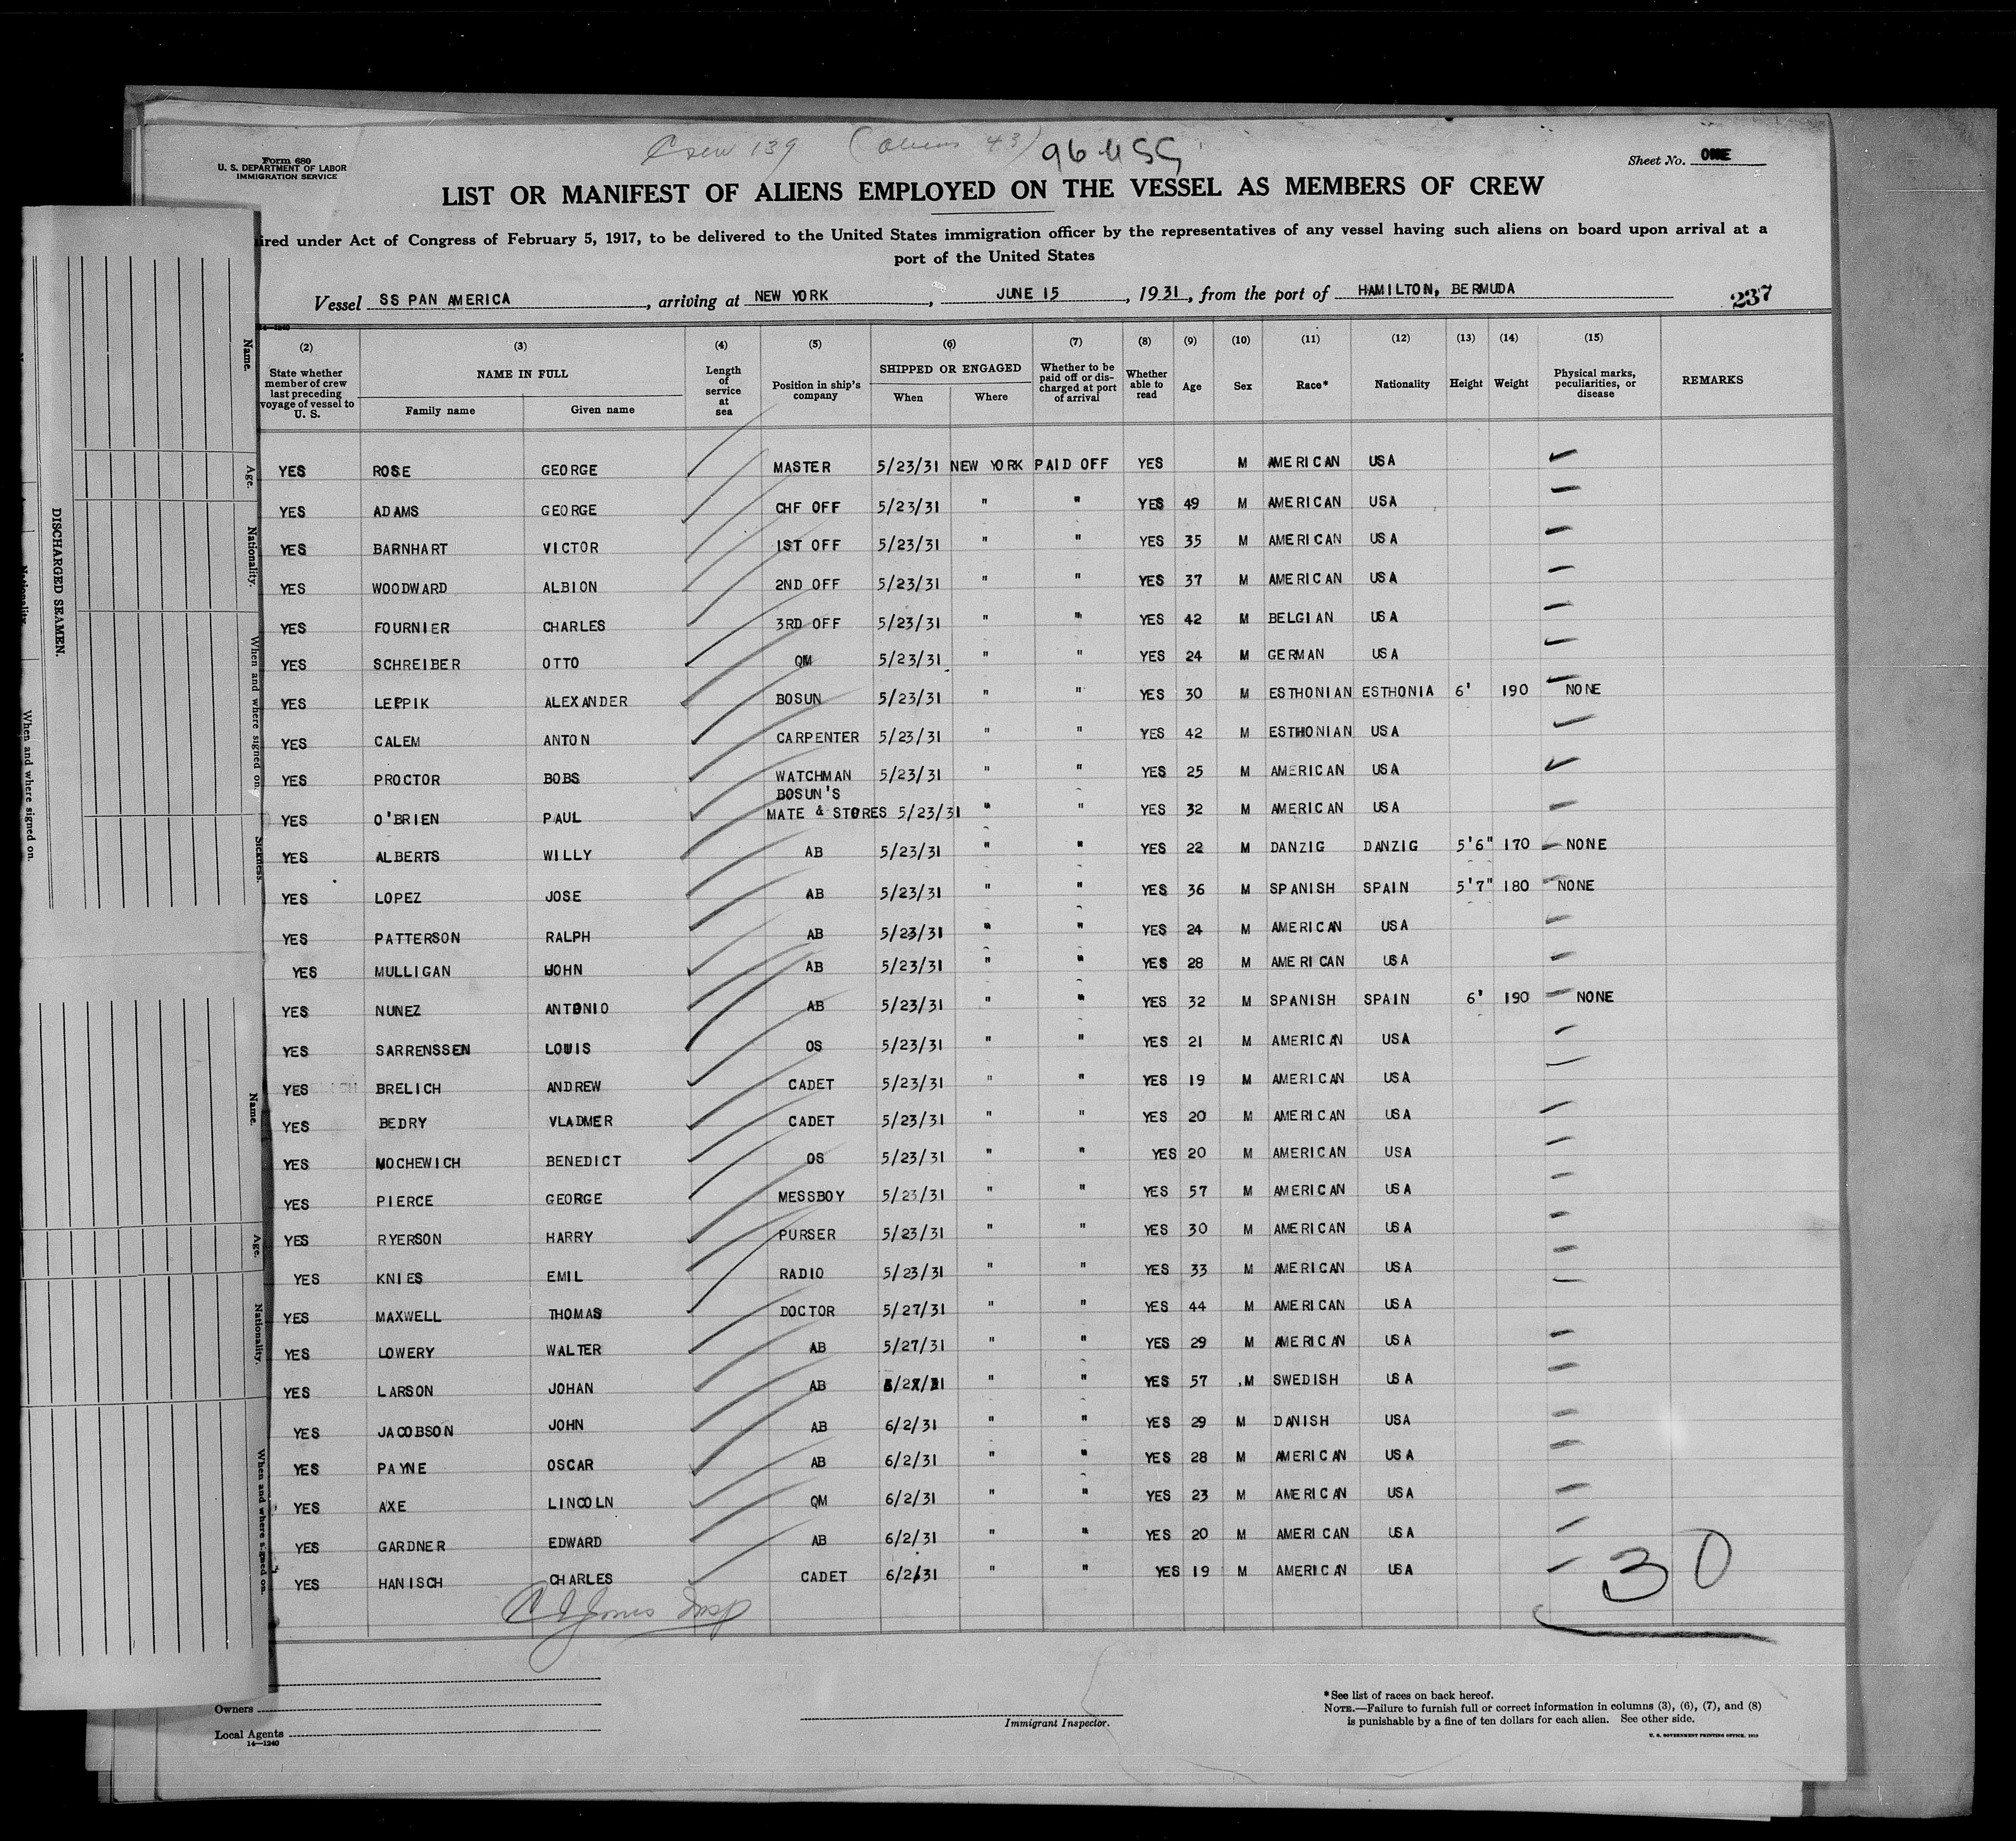 Crew 139 (Aliens 43) 96 USC
Form 680
U. S. DEPARTMENT OF LABOR
IMMIGRATION SERVICE
Sheet No. ONE
LIST OR MANIFEST OF ALIENS EMPLOYED ON THE VESSEL AS MEMBERS OF CREW
ired under Act of Congress of February 5, 1917, to be delivered to the United States immigration officer by the representatives of any vessel having such aliens on board upon arrival at a
port of the United States
Vessel SS PAN AMERICA, arriving at NEW YORK, JUNE 15, 1931, from the port of HAMILTON, BERMUDA
237
14—1240
(2) (3) (4) (5) (6) (7) (8) (9) (10) (11) (12) (13) (14) (15)
State whether member of crew last preceding voyage of vessel to U. S. NAME IN FULL Family name Given name Length of service at sea Position in ship's company SHIPPED OR ENGAGED When Where Whether to be paid off or discharged at port of arrival Whether able to read Age Sex Race* Nationality Height Weight Physical marks, peculiarities, or disease REMARKS
YES ROSE GEORGE MASTER 5/23/31 NEW YORK PAID OFF YES M AMERICAN USA
YES ADAMS GEORGE CHF OFF 5/23/31 " " YES 49 M AMERICAN USA
YES BARNHART VICTOR 1ST OFF 5/23/31 " " YES 35 M AMERICAN USA
YES WOODWARD ALBION 2ND OFF 5/23/31 " " YES 37 M AMERICAN USA
YES FOURNIER CHARLES 3RD OFF 5/23/31 " " YES 42 M BELGIAN USA
YES SCHREIBER OTTO QM 5/23/31 " " YES 24 M GERMAN USA
YES LEPPIK ALEXANDER BOSUN 5/23/31 " " YES 30 M ESTHONIAN ESTHONIA 6' 190 NONE
YES CALEM ANTON CARPENTER 5/23/31 " " YES 42 M ESTHONIAN USA
YES PROCTOR BOBS WATCHMAN 5/23/31 " " YES 25 M AMERICAN USA
BOSUN'S
YES O'BRIEN PAUL MATE & STORES 5/23/31 " " YES 32 M AMERICAN USA
YES ALBERTS WILLY AB 5/23/31 " " YES 22 M DANZIG DANZIG 5'6" 170 NONE
YES LOPEZ JOSE AB 5/23/31 " " YES 36 M SPANISH SPAIN 5'7" 180 NONE
YES PATTERSON RALPH AB 5/23/31 " " YES 24 M AMERICAN USA
YES MULLIGAN JOHN AB 5/23/31 " " YES 28 M AMERICAN USA
YES NUNEZ ANTONIO AB 5/23/31 " " YES 32 M SPANISH SPAIN 6' 190 NONE
YES SARRENSSEN LOUIS OS 5/23/31 " " YES 21 M AMERICAN USA
YES BRELICH ANDREW CADET 5/23/31 " " YES 19 M AMERICAN USA
YES BEDRY VLADMER CADET 5/23/31 " " YES 20 M AMERICAN USA
YES MOCHEWICH BENEDICT OS 5/23/31 " " YES 20 M AMERICAN USA
YES PIERCE GEORGE MESSBOY 5/23/31 " " YES 57 M AMERICAN USA
YES RYERSON HARRY PURSER 5/23/31 " " YES 30 M AMERICAN USA
YES KNIES EMIL RADIO 5/23/31 " " YES 33 M AMERICAN USA
YES MAXWELL THOMAS DOCTOR 5/27/31 " " YES 44 M AMERICAN USA
YES LOWERY WALTER AB 5/27/31 " " YES 29 M AMERICAN USA
YES LARSON JOHAN AB " " YES 57 M SWEDISH USA
YES JACOBSON JOHN AB 6/2/31 " " YES 29 M DANISH USA
YES PAYNE OSCAR AB 6/2/31 " " YES 28 M AMERICAN USA
YES AXE LINCOLN QM 6/2/31 " " YES 23 M AMERICAN USA
YES GARDNER EDWARD AB 6/2/31 " " YES 20 M AMERICAN USA
YES HANISCH CHARLES CADET 6/2/31 " " YES 19 M AMERICAN USA
30
Jones Insp
Owners
Local Agents
14—1240
Immigrant Inspector.
*See list of races on back hereof.
NOTE.—Failure to furnish full or correct information in columns (3), (6), (7), and (8)
is punishable by a fine of ten dollars for each alien. See other side.
U. S. GOVERNMENT PRINTING OFFICE
DISCHARGED SEAMEN.
Name.
Age.
Nationality.
When and where signed on.
Sickness.
Nationality.
When and where signed on.
Name.
Age.
Nationality.
When and where signed on.